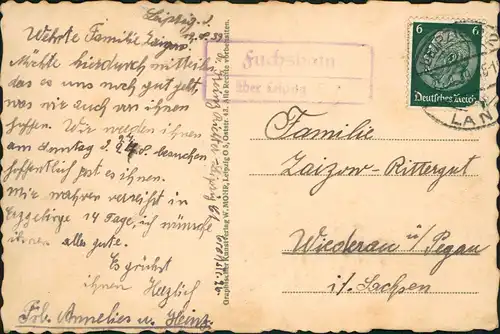 Leipzig d.
19.8.39
Wehrte Familie Zaizow.
Möchte hierdurch mitteilen
das es uns noch gut geht,
was wir auch von ihnen
hoffen. Wir werden ihnen
am Sonntag d. 27.8. besuchen
hoffentlich past es ihnen.
Wir wahren verreißt in
Erzgebirge 14 Tage, ich wünsche
ihnen alles gute.
Es grüßt
ihnen Herzlich
Frl. Annelies u. Heinz.
Graphischer Kunstverlag W. MOHR, Leipzig O 5, Oststr. 43. Alle Rechte vorbehalten.
Fuchshain
über Leipzig
6 6
Deutsches Reich
LAN
Familie
Zaizow-Rittergut
Wiederau i/Pegau
i/. Sachsen